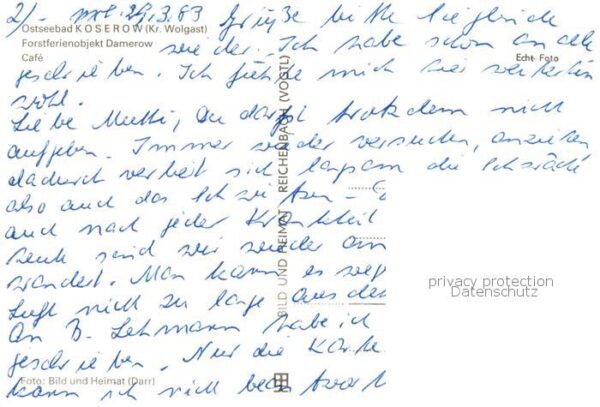 2/- 29.3.83 Grüße bitte Sieglinde
Ostseebad KOSEROW (Kr. Wolgast)
Forstferienobjekt Damerow
Café
wieder. Ich habe schon an alle
Echt Foto
geschrieben. Ich fühle mich hier weiterhin
wohl.
Liebe Mutti, Du darfst trotzdem nicht
aufgeben. Immer wieder versuchen,
dadurch verliert sich langsam die Schwäche
also auch das Schwitzen -
auch nach jeder Krankheit
Heute sind wir wieder
wandert. Man kann es
Luft nicht zu lange aus
An B. Lehmann habe ich
geschrieben. Nur die Karte
kann ich nicht
BILD UND HEIMAT REICHENBACH (VOGTL)
privacy protection
Datenschutz
Foto: Bild und Heimat (Darr)